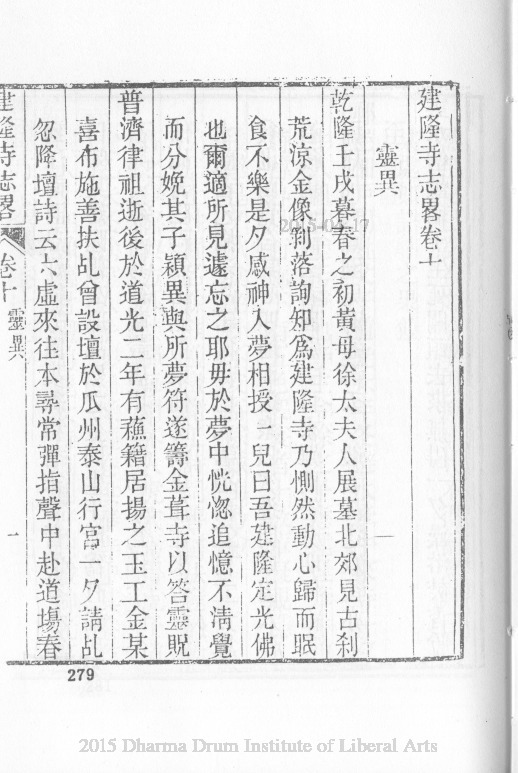 建隆寺志畧卷十
靈異
乾隆壬戌暮春之初黃母徐太夫人展墓北郊見古刹
荒凉金像剝落詢知爲建隆寺乃惻然動心歸而眠
食不樂是夕感神入夢相授一兒曰吾建隆定光佛
也爾適所見遽忘之耶毋於夢中恍惚追憶不淸覺
而分娩其子穎異與所夢符遂籌金葺寺以答靈貺
普濟律祖逝後於道光二年有蘓籍居揚之玉工金某
喜布施善扶乩曾設壇於瓜州泰山行宮一夕請乩
忽降壇詩云六虛來往本尋常彈指聲中赴道塲春
建隆寺志畧 卷十 靈異 一
279
2015-03-17
2015 Dharma Drum Institute of Liberal Arts